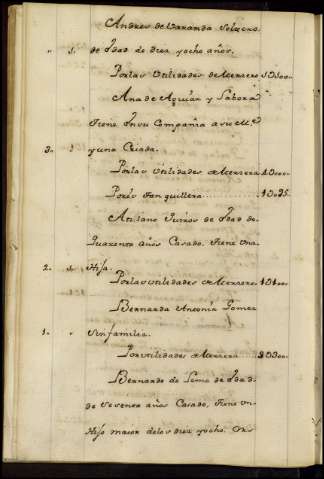 Andres de Varanda Soltero
" 1. de Edad de diez y ocho años.
Por las Utilidades de Mercero 1500..
Ana de Aguiar y Labora
Tiene en su Compañia a su M.e
3. " y una Criada.
Por las Utilidades de Mercera
Por su Tanquillera
Antonio de Edad de
Quarenta años Casado. tiene una
2. Hija.
Por las Utilidades de Mercero
Bernarda Antonia Gomez
1. " Sin familia.
Por utilidades de Mercera
Bernardo de Lema de Edad
de Sesenta años Casado, tiene un
Hijo maior de los diez y ocho. Otro